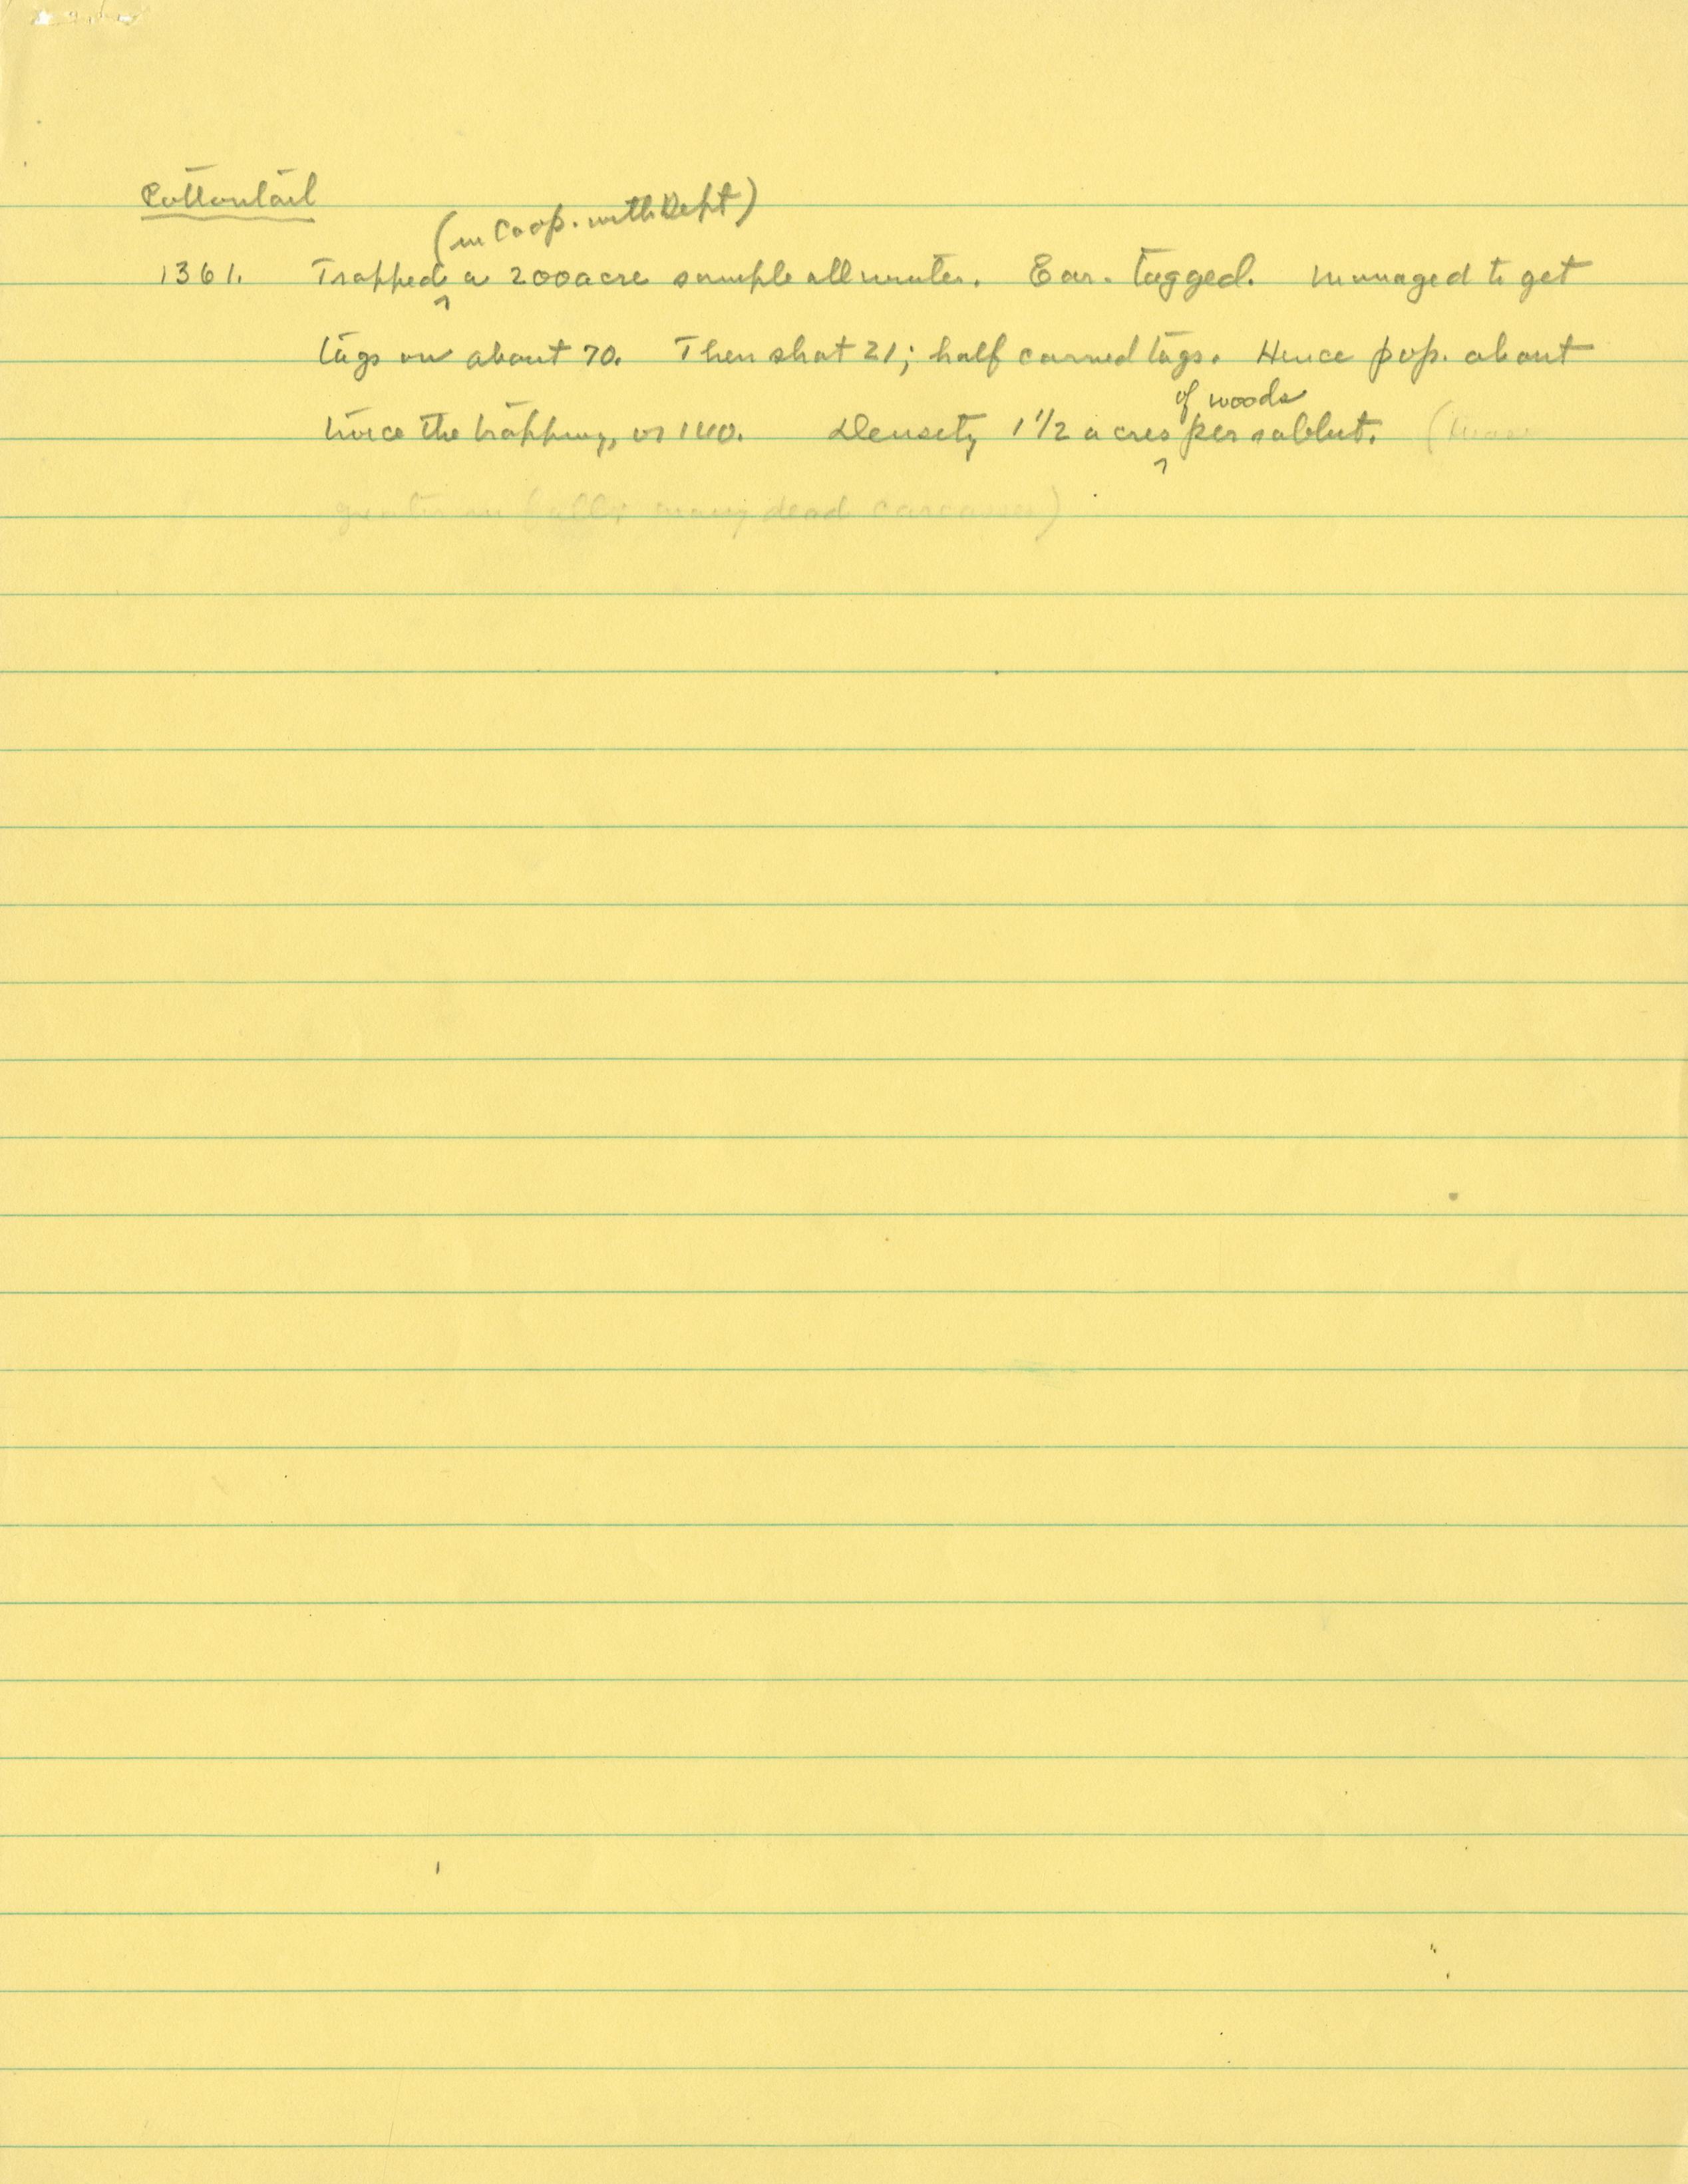 Cottontail
(in Coop. with Dept)
1361. Trapped ^ a 200 acre sample all winter. Ear-tagged. Managed to get
tags on about 70. Then shot 21; half carried tags. Hence pop. about
of woods
twice the trapping, or 140. Density 1 1/2 acres ^ per rabbit. (
greater in fall; many dead carcasses)